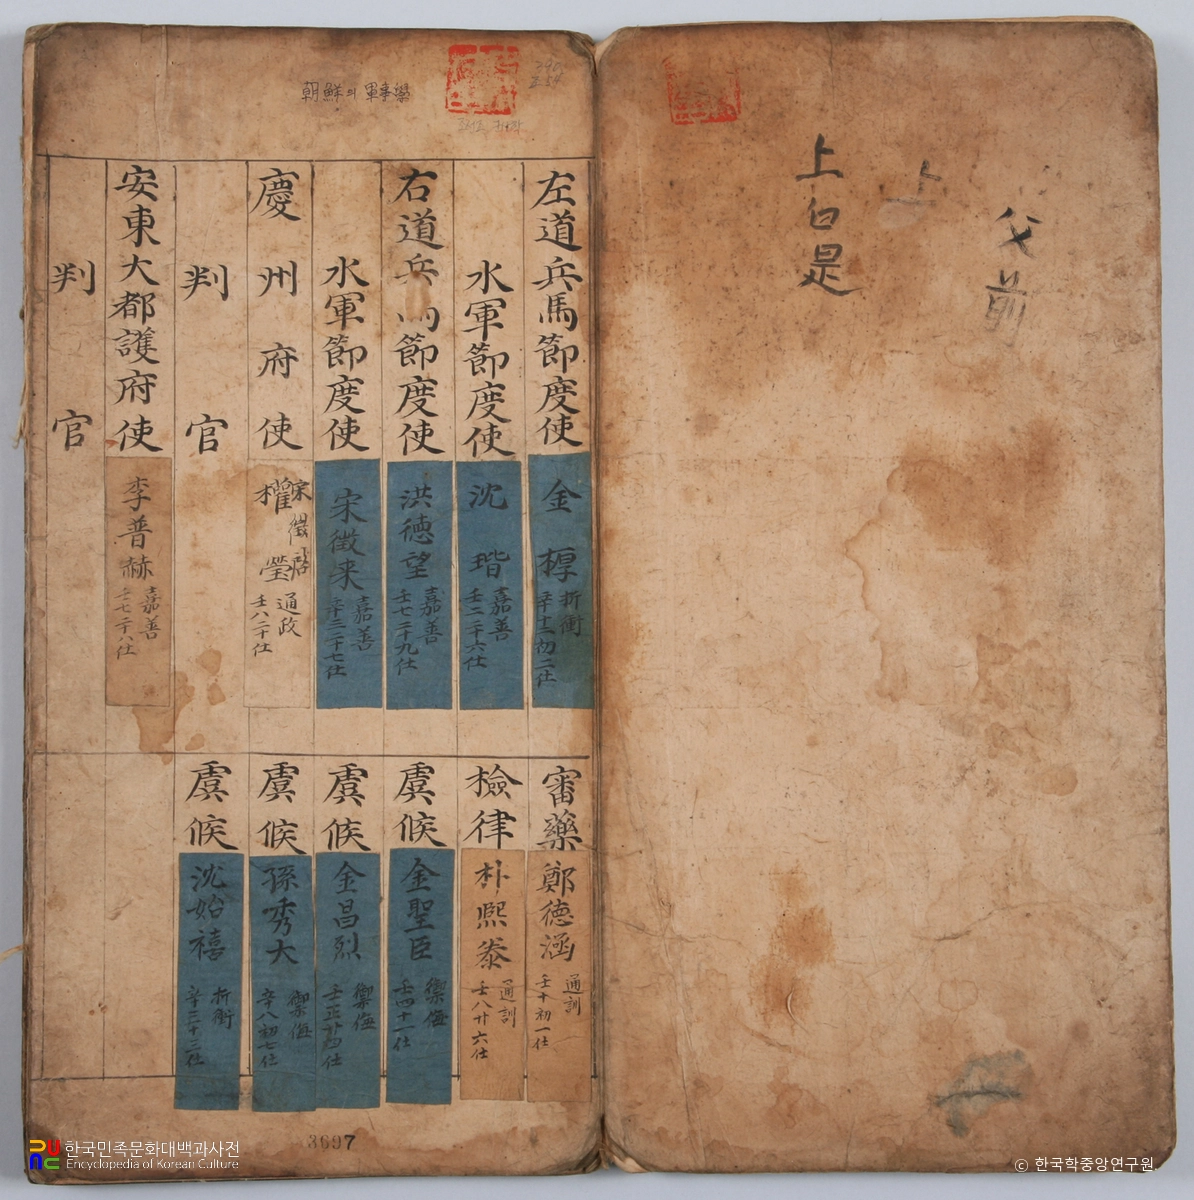 上
父前
上白是
朝鮮의 軍事學
左道兵馬節度使
金 樳 折衝
辛十二初二仕
水軍節度使
沈 瑎 嘉善
壬二二十六仕
右道兵馬節度使
洪德望 嘉善
壬七二十九仕
水軍節度使
宋徵来 嘉善
辛三二十七仕
慶州府使
宋徵啓
權瑩 通政
壬八二十仕
判官
安東大都護府使
李普赫 嘉善
壬七二十八仕
判官
審藥
鄭德涵 通訓
壬十初一仕
檢律
朴熙泰 通訓
壬八廿六仕
虞候
金聖臣 禦侮
壬四十一仕
虞候
金昌烈 禦侮
壬正廿四仕
虞候
孫秀大 禦侮
辛八初七仕
虞候
沈始禧 折衝
辛三十三仕
3697
한국민족문화대백과사전
Encyclopedia of Korean Culture
© 한국학중앙연구원